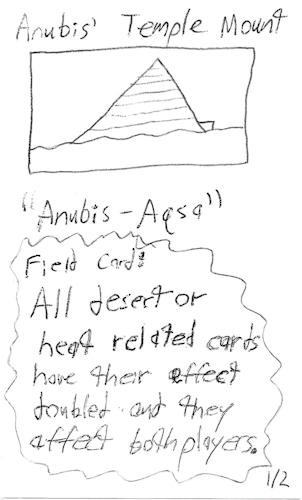 Anubis' Temple Mount
"Anubis-Aqsa"
Field Card:
All desert or
heat related cards
have their effect
doubled and they
affect both players.
1/2